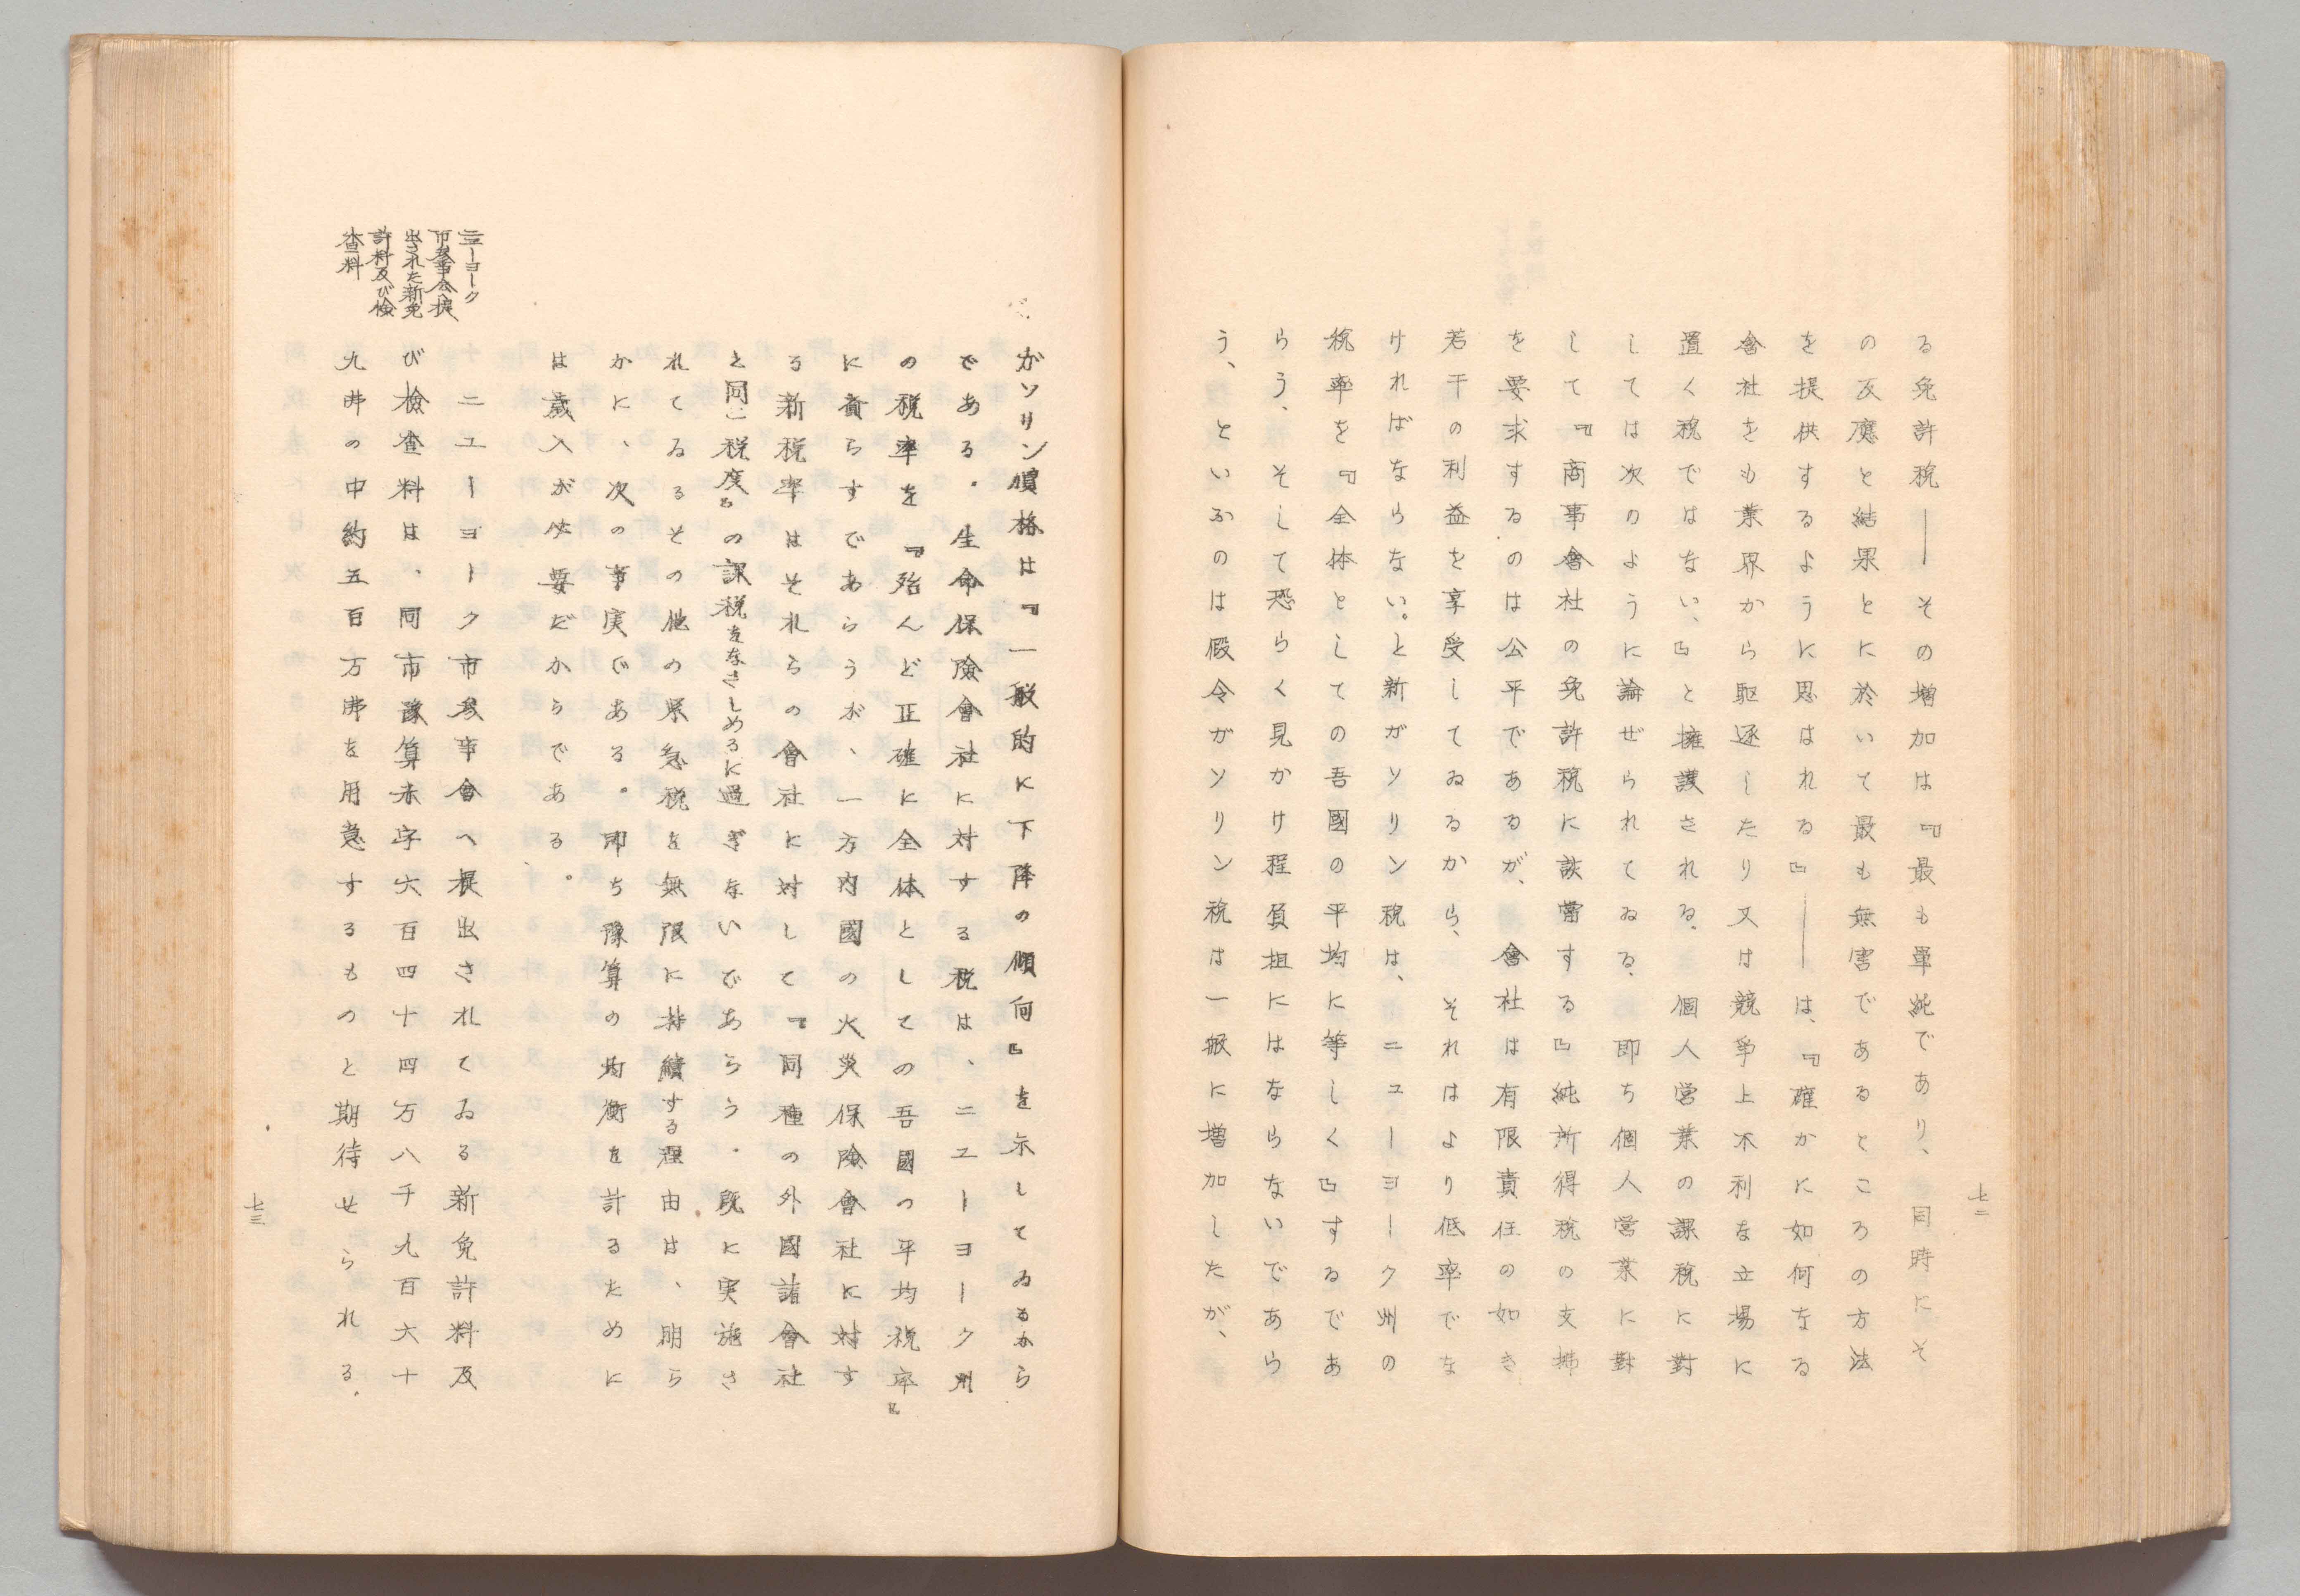 る免許税──その増加は『最も単純であり、同時にそ
の反應と結果とに於いて最も無害であるところの方法
を提供するように思はれる』──は、『確かに如何なる
會社をも業界から駆逐したり又は競争上不利な立場に
置く税ではない、』と擁護される。個人営業の課税に對
しては次のように論ぜられてゐる。即ち個人営業に對
して『商事會社の免許税に該當する』純所得税の支拂
を要求するのは公平であるが、會社は有限責任の如き
若干の利益を享受してゐるから、それはより低率でな
ければならない。と新ガソリン税は、ニューヨーク州の
税率を『全体としての吾國の平均に等しく』するであ
らう、そして恐らく見かけ程負担にはならないであら
う、といふのは假令ガソリン税は一般に増加したが、
七二
ガソリン價格は『一般的に下降の傾向』を示してゐるから
である。生命保險會社に対する税は、ニユーヨーク州
の税率を『殆んど正確に全体としての吾國の平均税率』
に齎らすであらうが、一方内國の火災保險會社に対す
る新税率はそれらの會社に対して『同種の外國諸會社
と同じ税度』の課税をなさしめるに過ぎないであらう。既に実施さ
れてゐるその他の緊急税を無限に持續する理由は、明ら
かに、次の事実である。即ち豫算の均衡を計るために
は歳入が必要だからである。
ニューヨーク
市参事会へ提
出された新免
許料及び檢
査料
ニユーヨーク市参事會へ提出されてゐる新免許料及
び檢査料は、同市豫算赤字六百四十四万八千九百六十
九弗の中約五百万弗を用意するものと期待せられる。
七三